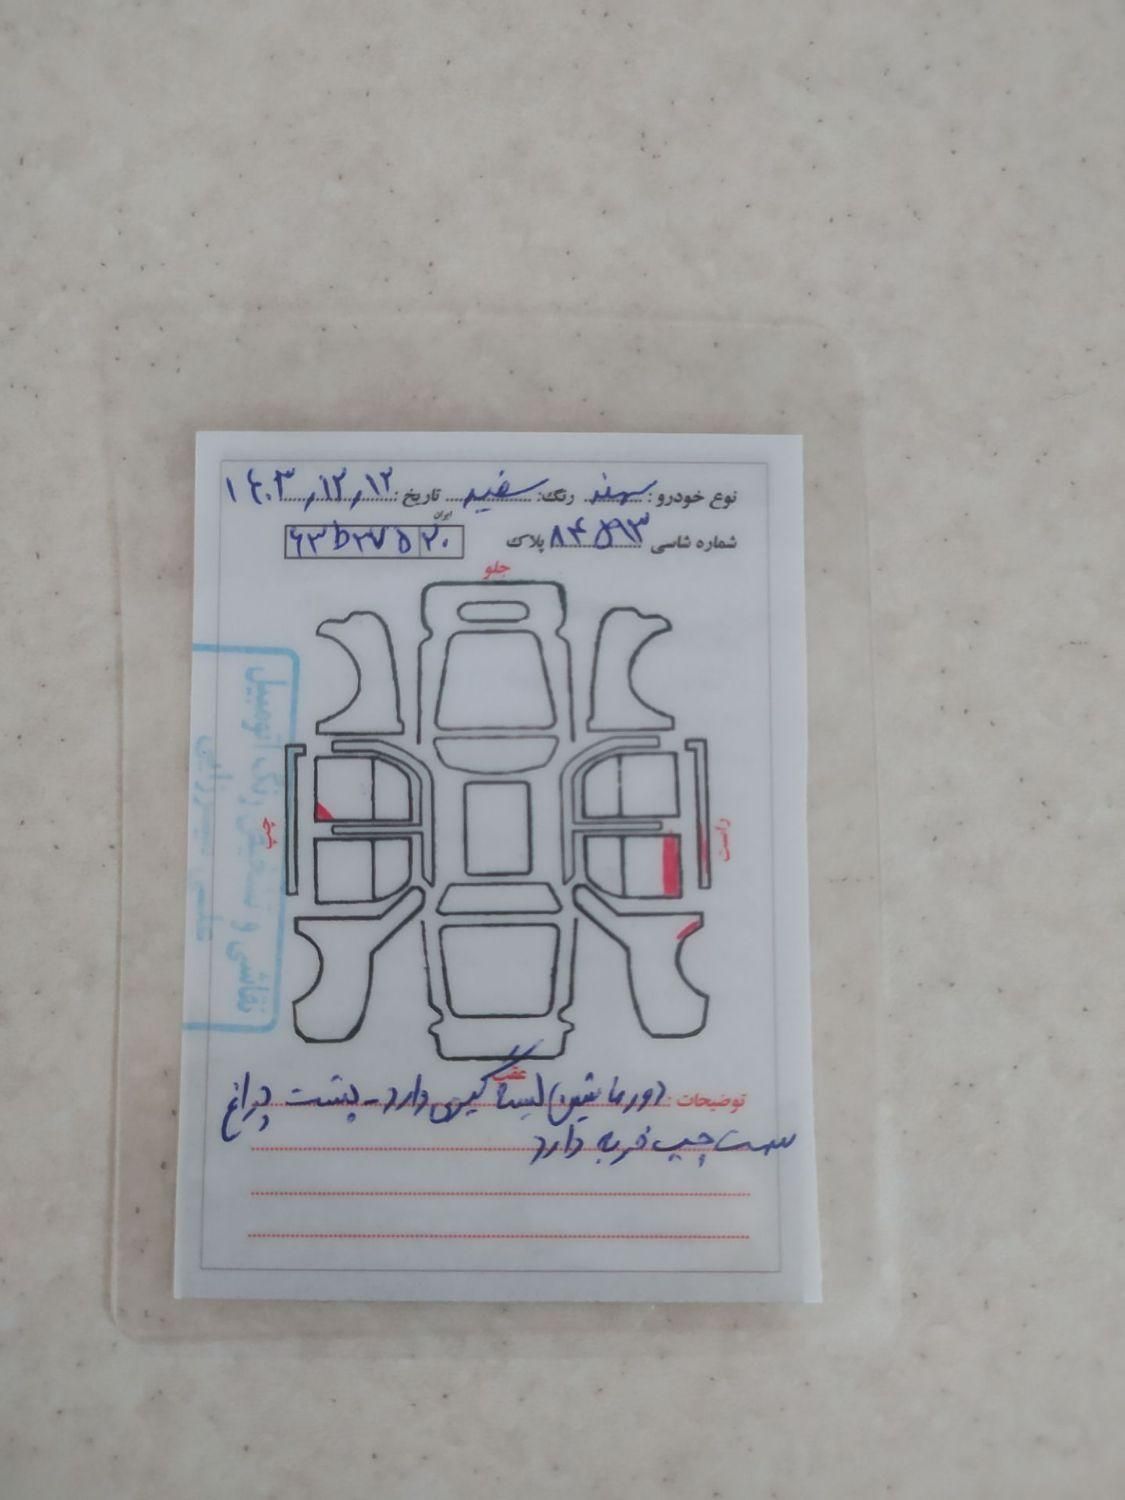 نوع خودرو: سهند رنگ: سفید تاریخ: ۱۴۰۳/۱۲/۱۲
شماره شاسی ۸۴۵۹۳ پلاک ایران ۶۳ط۲۷۵ ۲۰
جلو
چپ
راست
نقاشی و تشخیص رنگ اتومبیل
عقب
توضیحات: دور ماشین لیسه گیری دارد - پشت چراغ
سمت چپ ضربه دارد